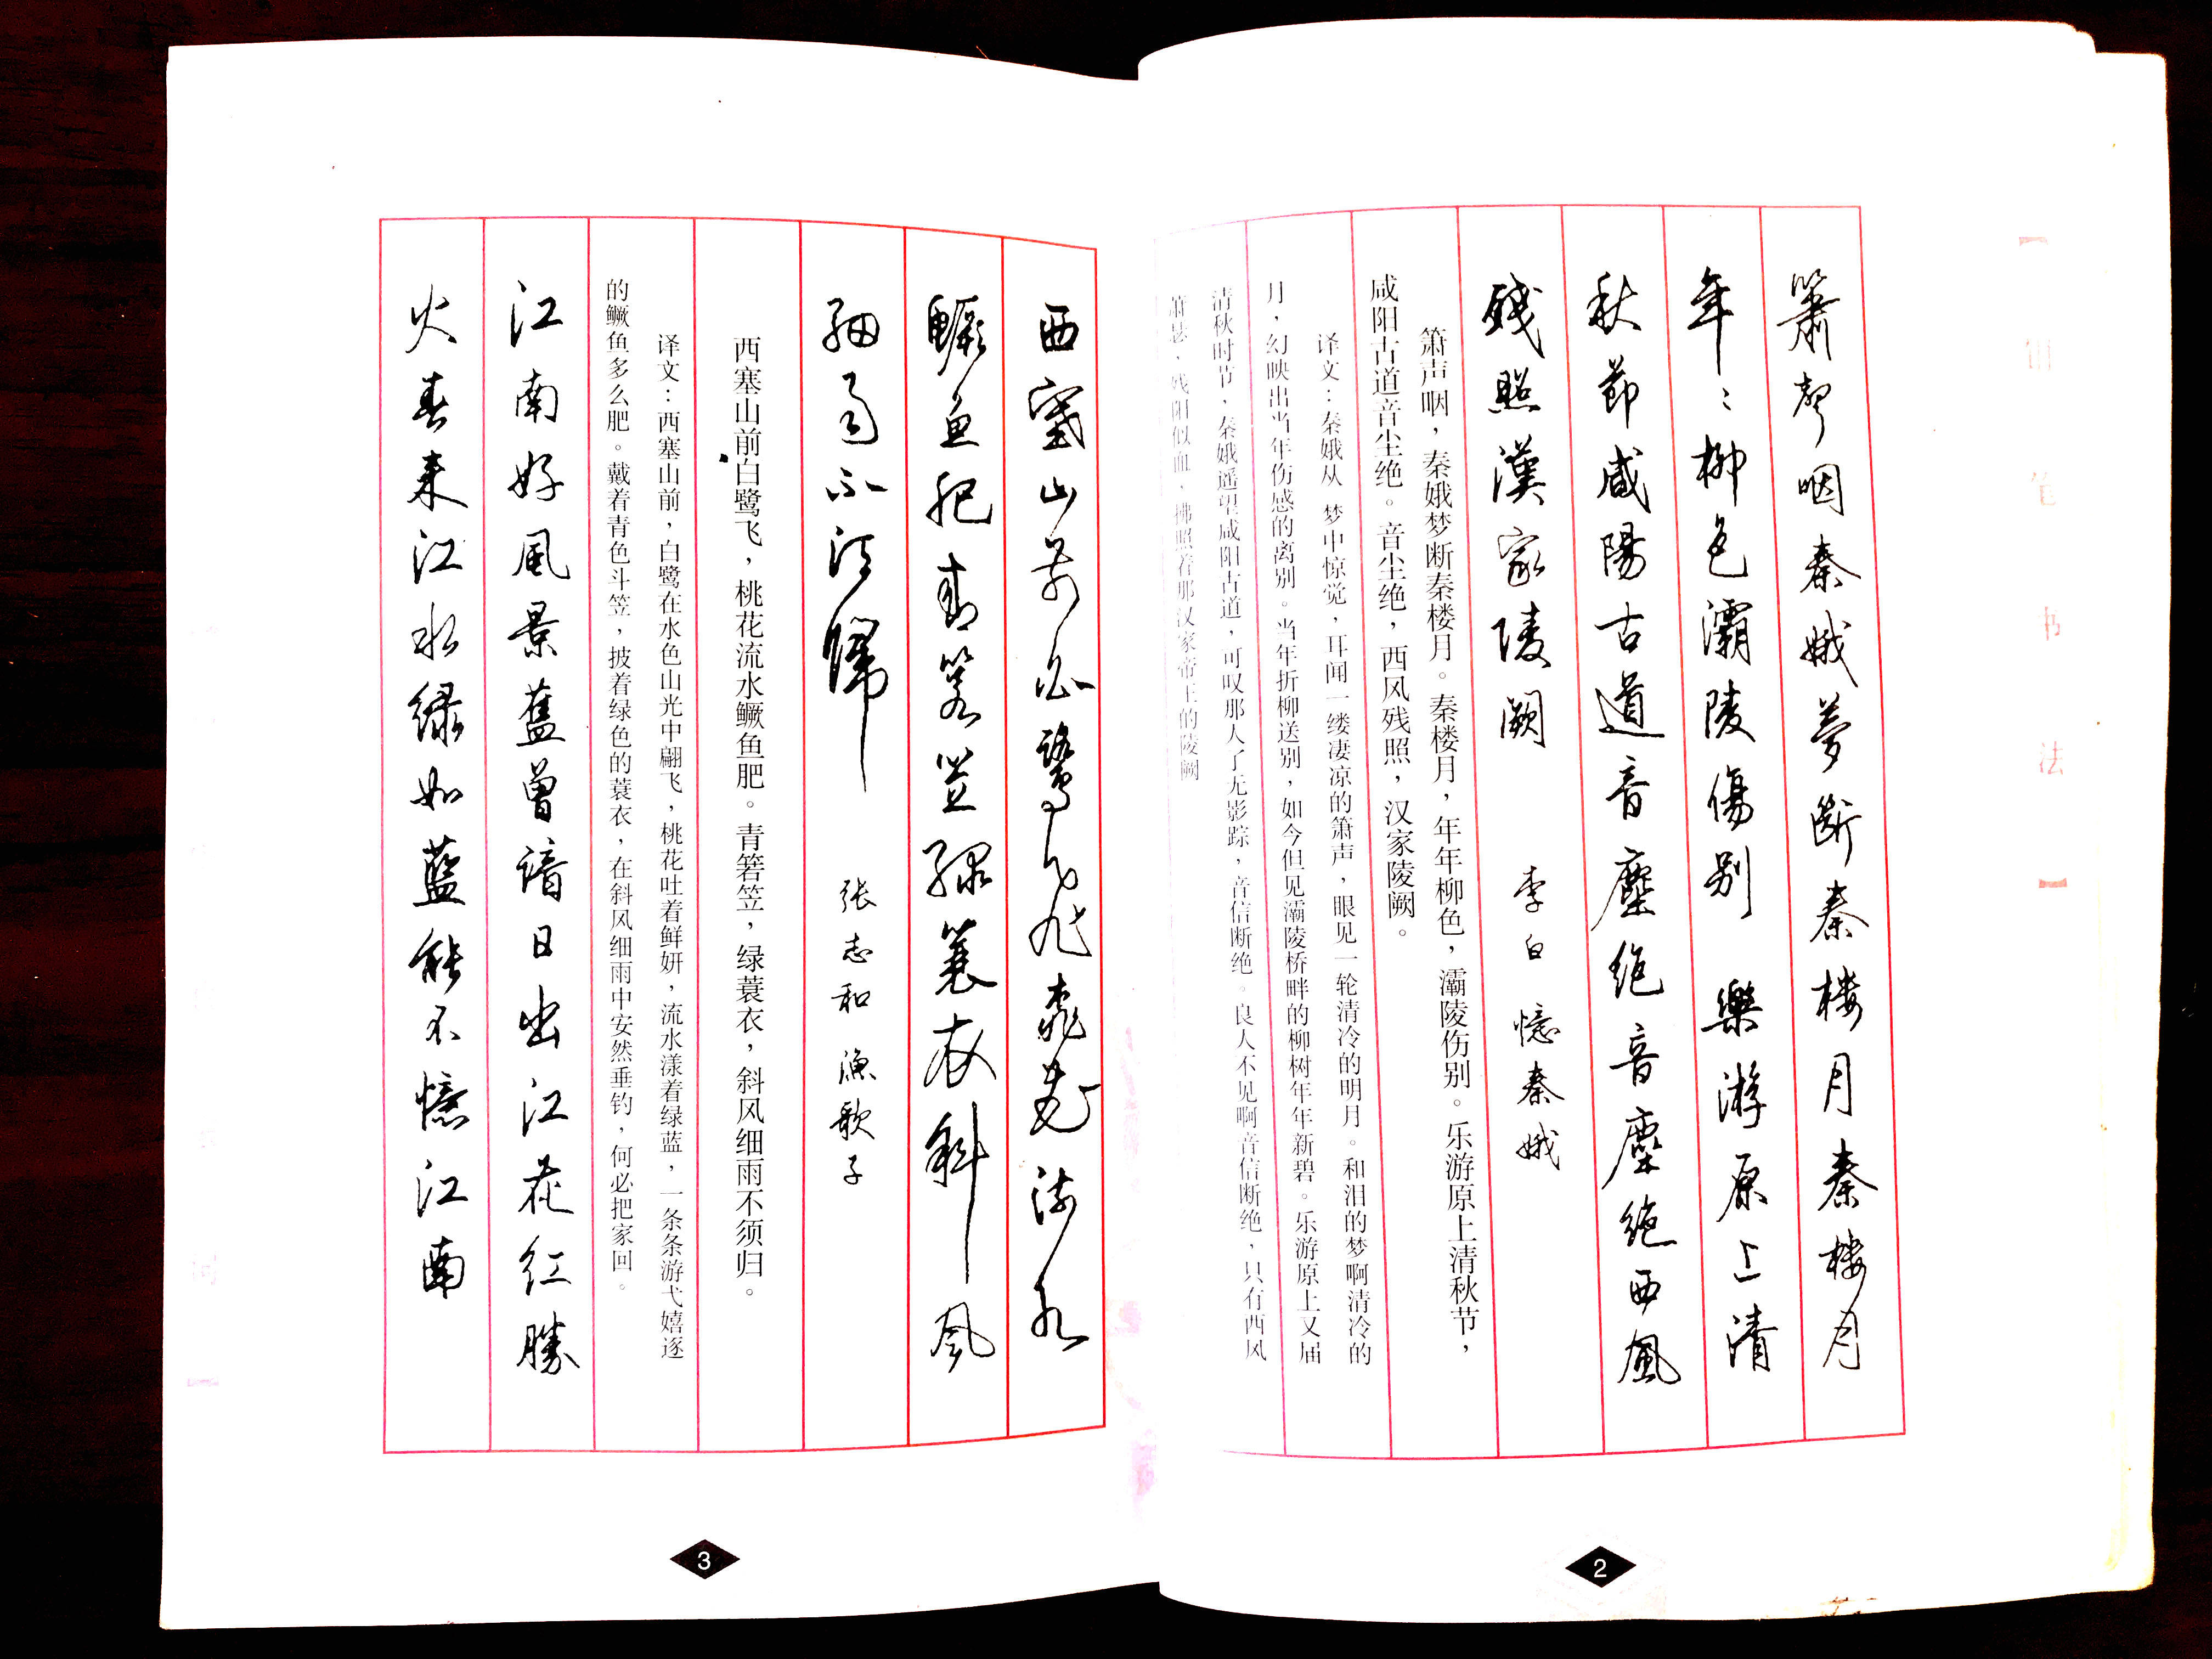 簫聲咽秦娥夢斷秦楼月秦楼月
年〻柳色灞陵傷别 樂游原上清
秋節咸陽古道音塵绝音塵绝西風
殘照漢家陵阙 李白 憶秦娥
箫声咽，秦娥梦断秦楼月。秦楼月，年年柳色，灞陵伤别。乐游原上清秋节，
咸阳古道音尘绝。音尘绝，西风残照，汉家陵阙。
译文：秦娥从 梦中惊觉，耳闻一缕凄凉的箫声，眼见一轮清冷的明月。和泪的梦啊清冷的
月，幻映出当年伤感的离别。当年折柳送别，如今但见灞陵桥畔的柳树年年新碧。乐游原上又届
清秋时节，秦娥遥望咸阳古道，可叹那人了无影踪，音信断绝。良人不见啊音信断绝，只有西风
萧瑟，残阳似血，拂照着那汉家帝王的陵阙
2
书法
西塞山前白鷺飛桃花流水
鳜鱼肥青箬笠绿蓑衣斜風
细雨不须歸 张志和 渔歌子
西塞山前白鹭飞，桃花流水鳜鱼肥。青箬笠，绿蓑衣，斜风细雨不须归。
译文：西塞山前，白鹭在水色山光中翩飞，桃花吐着鲜妍，流水漾着绿蓝，一条条游弋嬉逐
的鳜鱼多么肥。戴着青色斗笠，披着绿色的蓑衣，在斜风细雨中安然垂钓，何必把家回。
江南好風景舊曾谙日出江花红勝
火春来江水绿如藍能不憶江南
3